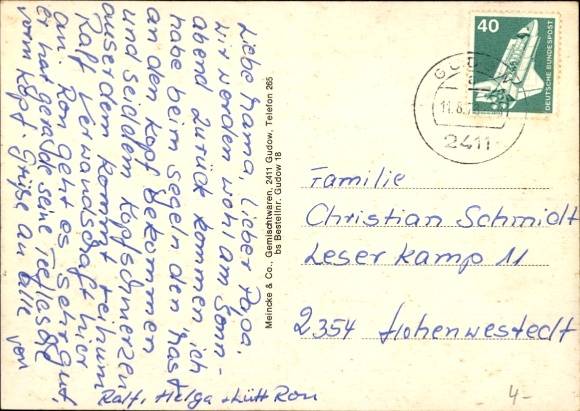 Liebe Mama, Lieber Papa.
wir werden wohl am Sonn-
abend zurück kommen, ich
habe beim segeln den Mast
an den Kopf bekommen
und seitdem Kopfschmerzen
ausserdem kommt
Ralf Verwandschaft hier
an. Ron geht es sehr gut,
er hat gerade seine Teeflasche
vorm Kopf. Grüße an alle von
Ralf, Helga + Lütt Ron
Meincke & Co., Gemischtwaren, 2411 Gudow, Telefon 265
bs Bestellnr. Gudow 18
40
DEUTSCHE BUNDESPOST
2411
Familie
Christian Schmidt
Leser Kamp 11
2354 Hohenwestedt
4-